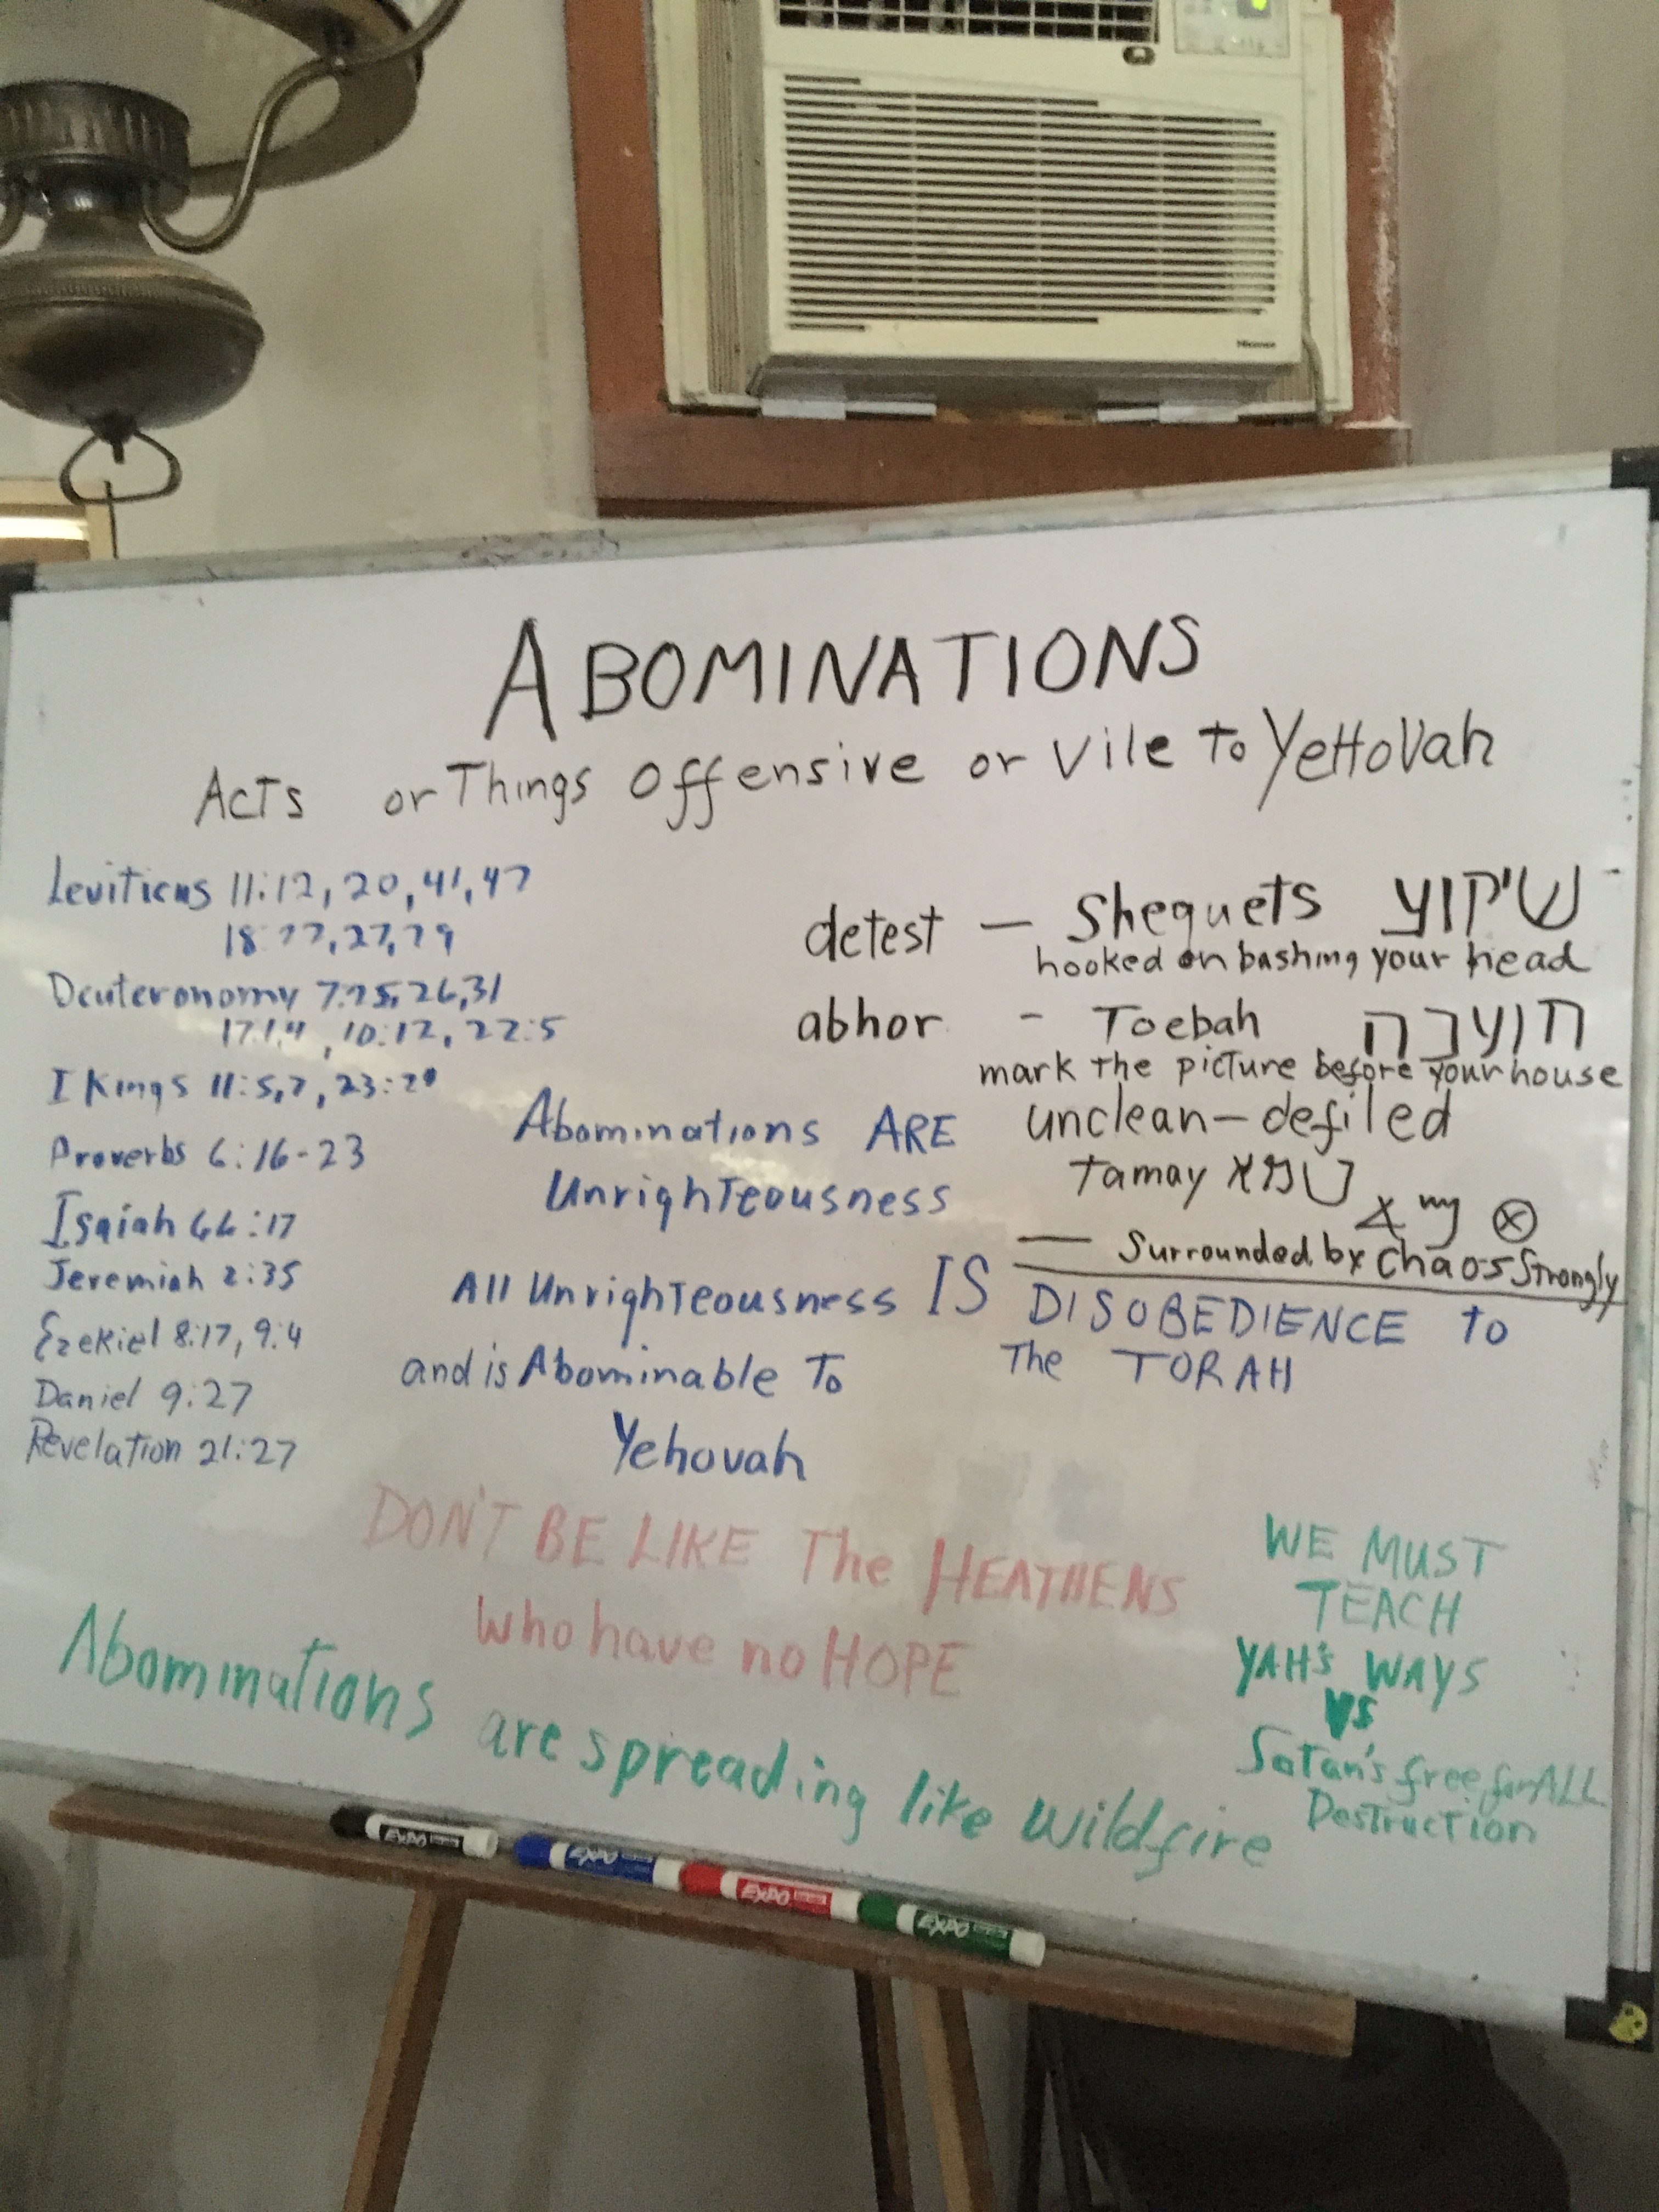 Hisense
ABOMINATIONS
Acts or Things Offensive or Vile to YeHoVah
Leviticus 11:12, 20, 41, 47
27, 29
Deuteronomy 26, 31
17:1,4, 22:5
I Kings 11:5,7, 23:
Proverbs 6:16-23
Isaiah 66:17
Jeremiah 2:35
Ezekiel 8:17, 9:4
Daniel 9:27
Revelation 21:27
detest — Shequets שיקוץ
hooked on bashing your head
abhor - Toebah תועבה
mark the picture before your house
unclean — defiled
Tamay טמא
— Surrounded by Chaos Strongly
Abominations ARE
Unrighteousness
All Unrighteousness IS DISOBEDIENCE to
The TORAH
and is Abominable To
Yehovah
DON'T BE LIKE The HEATHENS
who have no HOPE
WE MUST
TEACH
YAH's WAYS
VS
Satan's free for ALL
Destruction
Abominations are spreading like wildfire
EXPO
EXPO
EXPO
EXPO